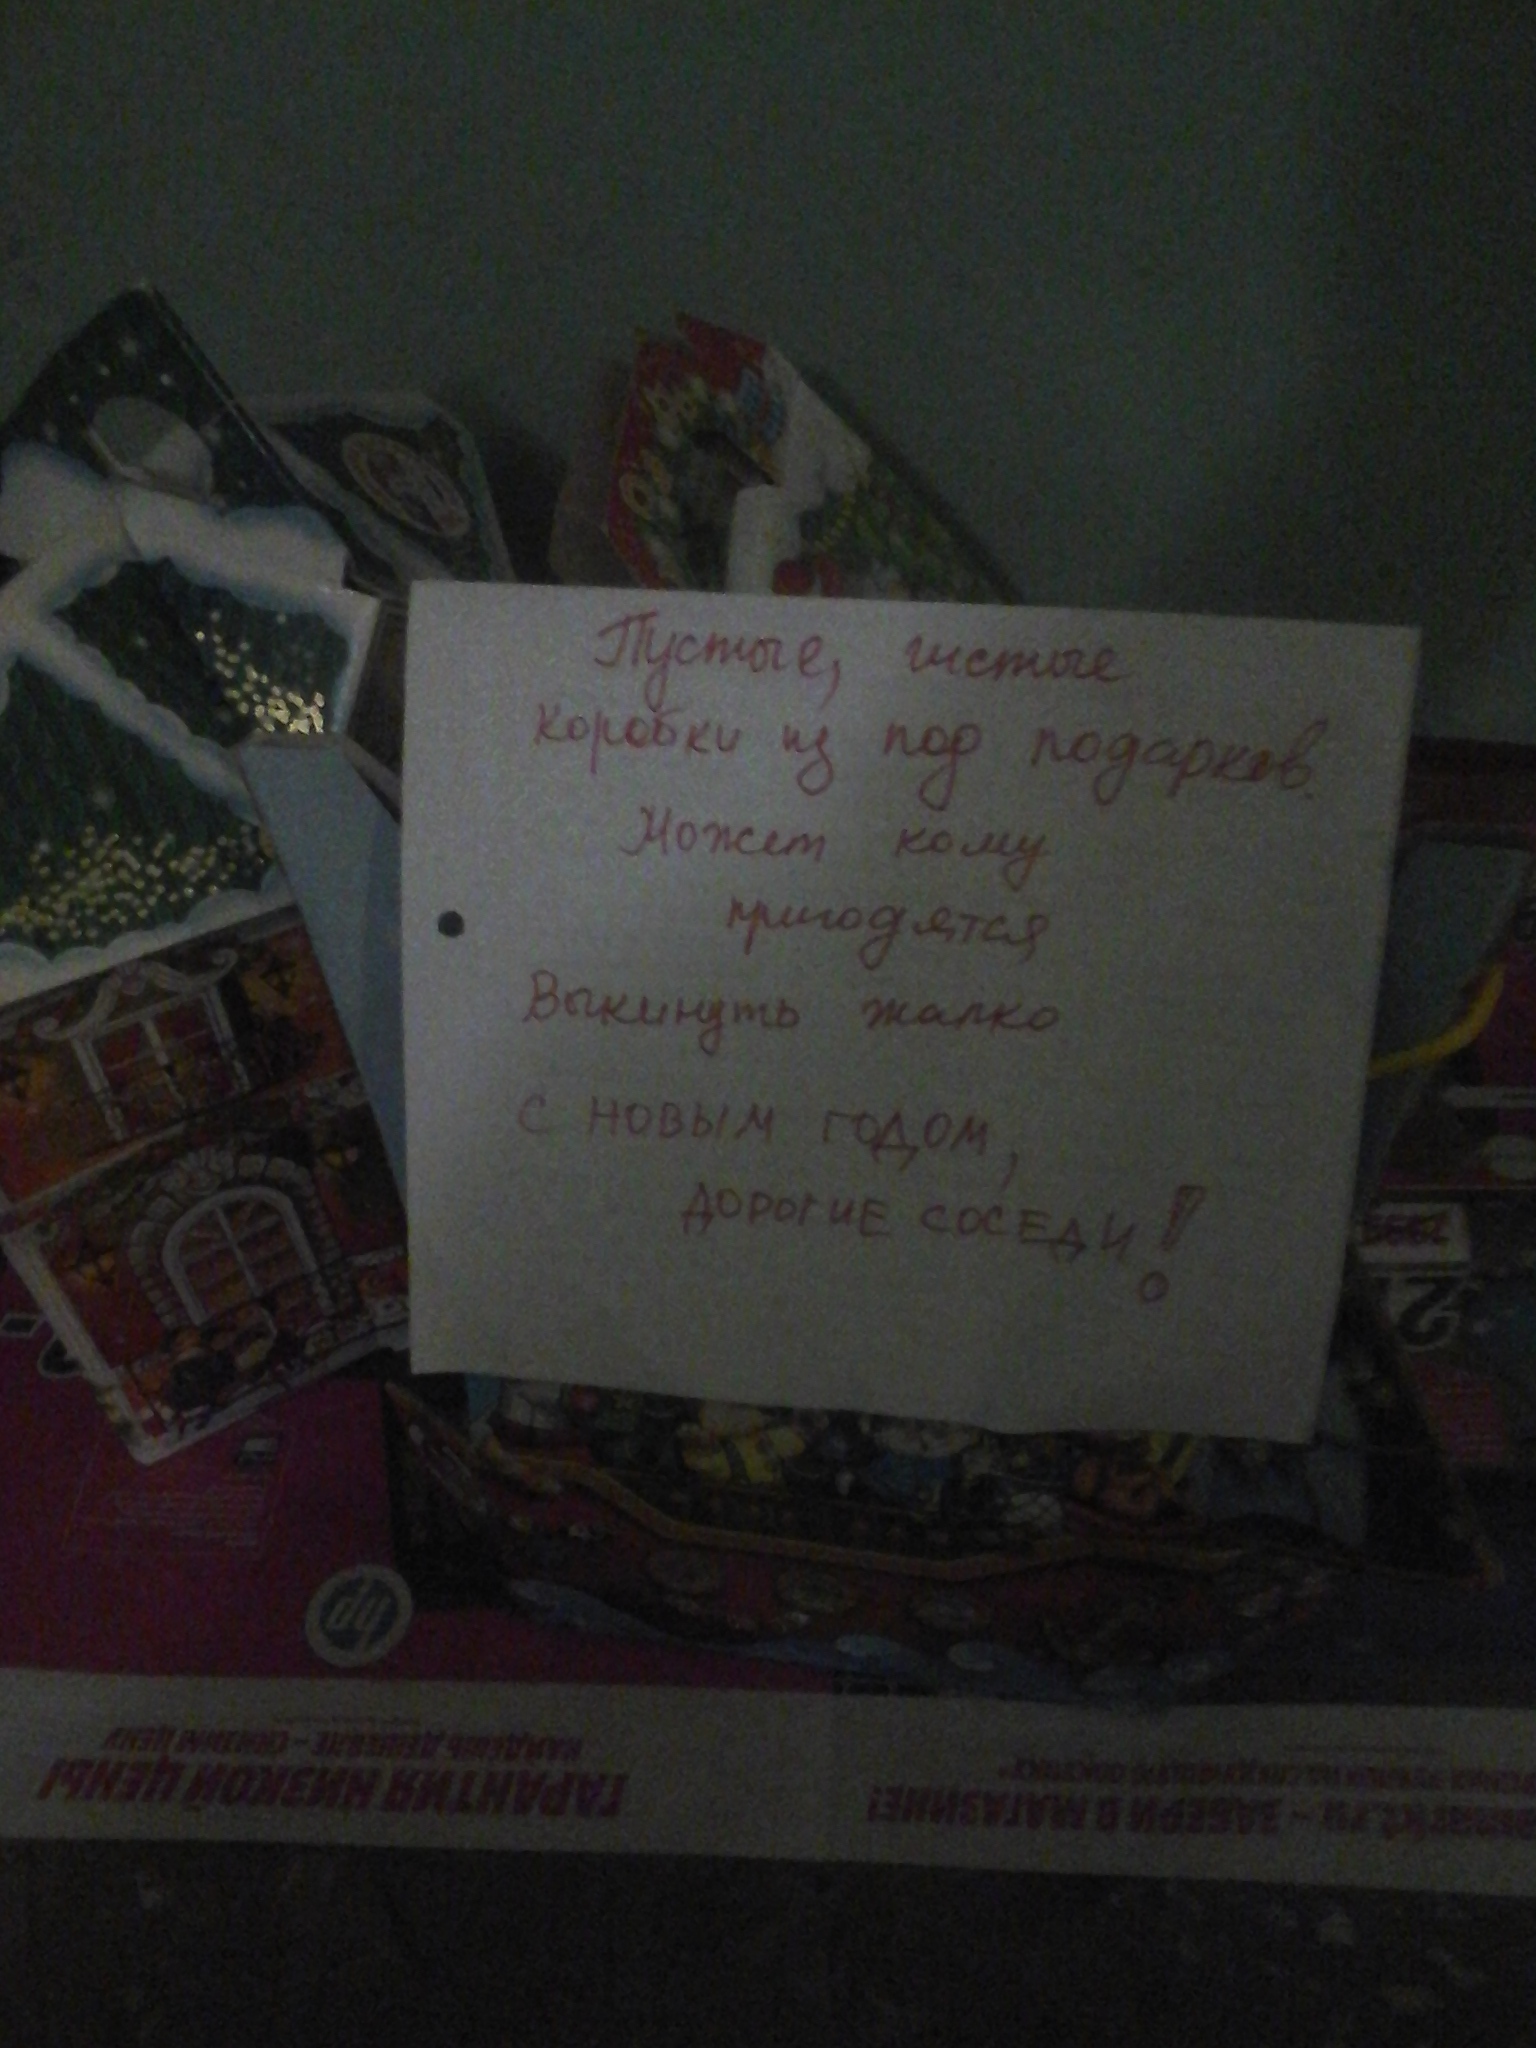 Пустые, чистые
коробки из под подарков.
Может кому
пригодятся
Выкинуть жалко
С НОВЫМ ГОДОМ,
ДОРОГИЕ СОСЕДИ!
hp
ГАРАНТИЯ НИЗКОЙ ЦЕНЫ
НАЙДЕШЬ ДЕШЕВЛЕ - СНИЗИМ ЦЕНУ
- ЗАБЕРИ В МАГАЗИНЕ!